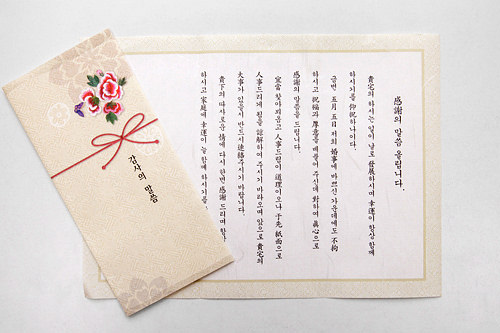 感謝의 말씀 올립니다.
貴宅의 하시는 일이 날로 發展하시며 幸運이 항상 함께
하시기를 仰祝하나이다.
금번 五月 五日 저희 婚事에 바쁘신 가운데에도 不拘
하시고 祝福과 厚意를 베풀어 주신데 對하여 眞心으로
感謝의 말씀을 드립니다.
宜當 찾아뵈옵고 人事드림이 道理이오나 于先 紙面으로
人事드리게 됨을 諒解하여 주시기 바라오며 앞으로 貴宅의
大事가 있을시 반드시 連絡주시기 바랍니다.
貴下의 따사로운 情에 다시 한번 感謝 드리며 항상
하시고 家庭에 幸運이 늘 함께 하시기를
감사의 말씀